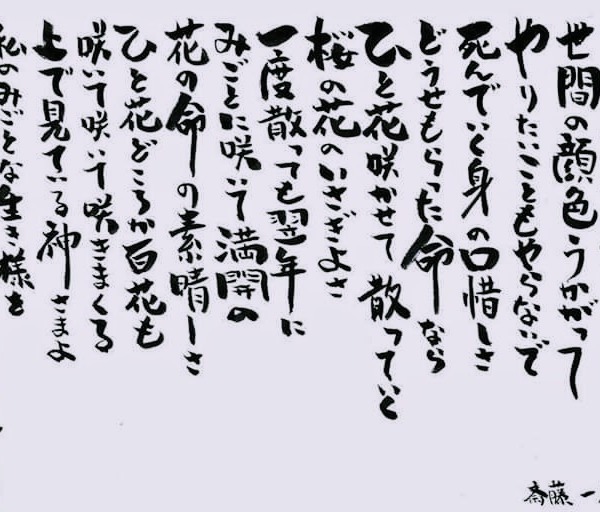 世間の顔色うかがって
やりたいこともやらないで
死んでいく身の口惜しさ
どうせもらった命なら
ひと花咲かせて散っていく
桜の花のいさぎよさ
一度散っても翌年に
みごとに咲いて満開の
花の命の素晴しさ
ひと花どころか百花も
咲いて咲いて咲きまくる
上で見ている神さまよ
私のみごとな生き様を
斎藤一